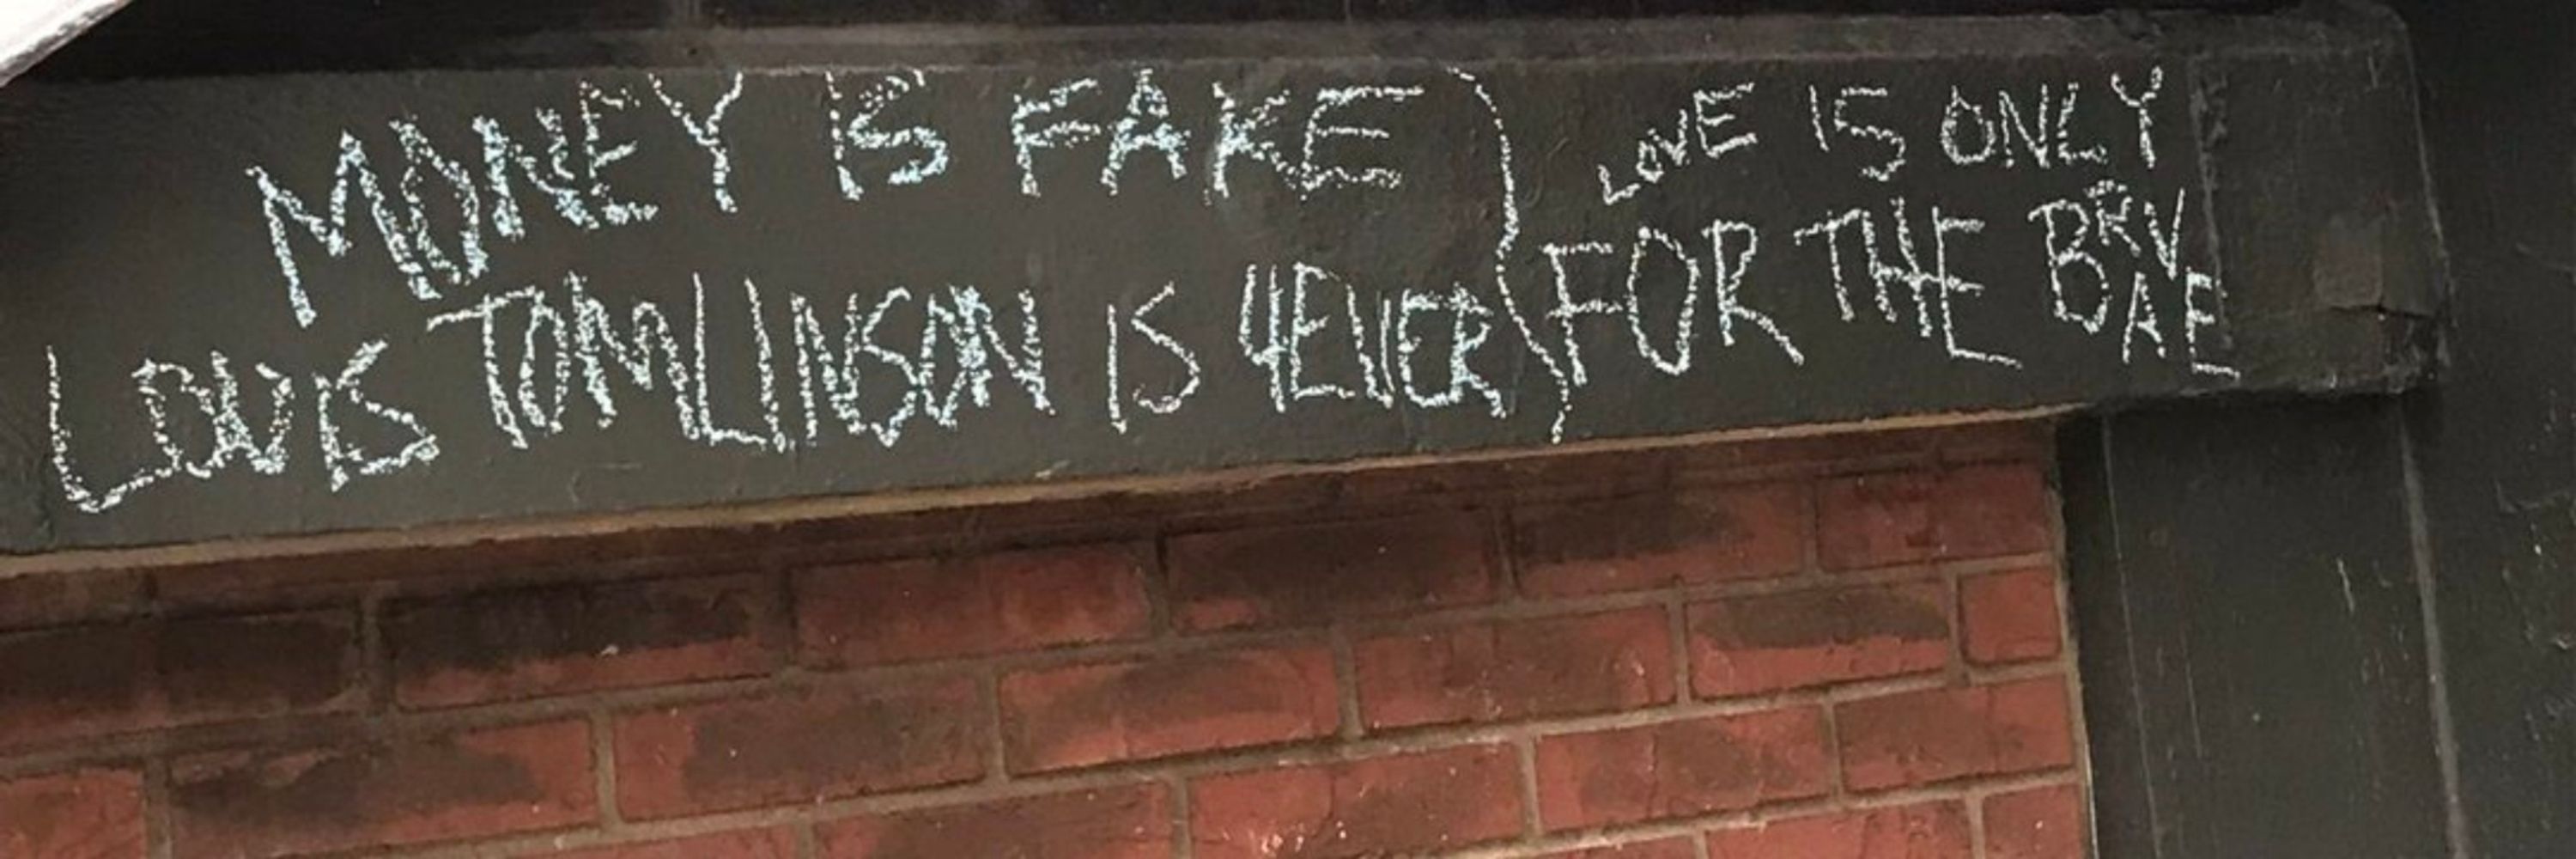 MONEY IS FAKE
LOUIS TOMLINSON IS 4EVER
LOVE IS ONLY
FOR THE BRAVE